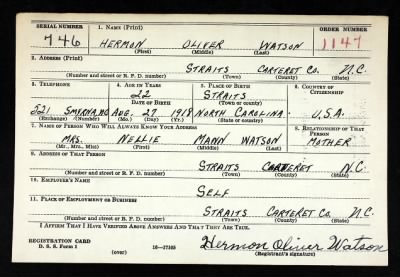 SERIAL NUMBER 1. NAME (Print) ORDER NUMBER
746 HERMON OLIVER WATSON 1147
(First) (Middle) (Last)
2. ADDRESS (Print)
STRAITS CARTERET CO. N.C.
(Number and street or R. F. D. number) (Town) (County) (State)
3. TELEPHONE 4. AGE IN YEARS 5. PLACE OF BIRTH 6. COUNTRY OF CITIZENSHIP
22 STRAITS
DATE OF BIRTH
521 SMYRNA NC AUG. 27 1918 NORTH CAROLINA U.S.A.
(Exchange) (Number) (Mo.) (Day) (Yr.) (State or country)
7. NAME OF PERSON WHO WILL ALWAYS KNOW YOUR ADDRESS 8. RELATIONSHIP OF THAT PERSON
MRS. NELLIE MANN WATSON MOTHER
(Mr., Mrs., Miss) (First) (Middle) (Last)
9. ADDRESS OF THAT PERSON
STRAITS CARTERET N.C.
(Number and street or R. F. D. number) (Town) (County) (State)
10. EMPLOYER'S NAME
SELF
11. PLACE OF EMPLOYMENT OR BUSINESS
STRAITS CARTERET CO. N.C.
(Number and street or R. F. D. number) (Town) (County) (State)
I AFFIRM THAT I HAVE VERIFIED ABOVE ANSWERS AND THAT THEY ARE TRUE.
REGISTRATION CARD
D. S. S. Form 1 (over) 16—17105 Hermon Oliver Watson
(Registrant's signature)